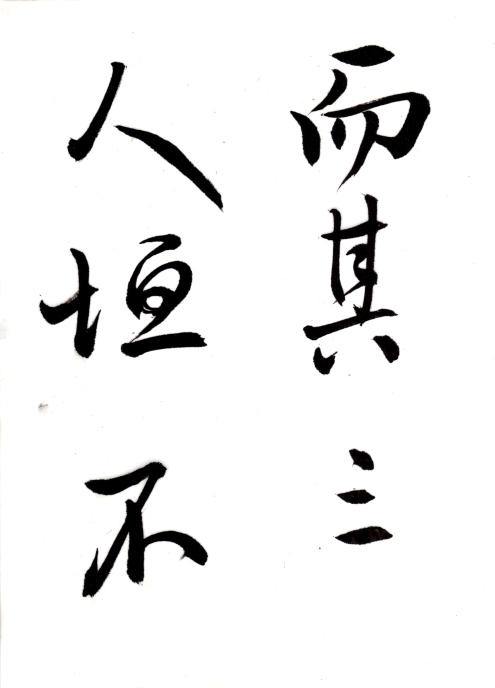 而其三
人垣不